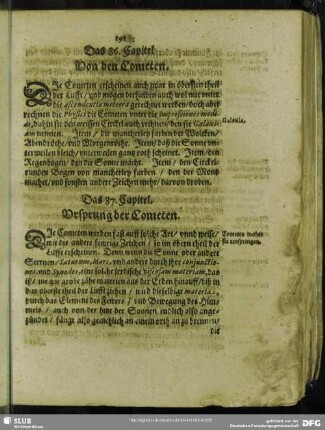 Das 86. Capitel.
Von den Cometen.
Die Cometen erscheinen auch zwar in oberstem theil
der Lufft / und mögen derhalben auch wol mit unter
die ascendentia meteora gerechnet werden / doch aber
rechnen die Physici die Cometen unter die impressiones
dahin sie den weissen Circkel auch rechnen / den sie Galaxiam
nennen. Item / die mancherley farben der Wolcken /
Abendröthe / und Morgenröthe. Item / daß die Sonne
weilen bleich / unterweilen gantz roth scheinet. Item / den
Regenbogen / den die Sonne macht. Item / den Circkel
runden Bogen von mancherley farben / den der Mond
macht / und sonsten andere Zeichen mehr / darvon droben.
Galaxia.
Das 87. Capitel.
Vrsprung der Cometen.
Die Cometen werden fast auff solche Art / vnnd weise /
wie die andere fewrige Zeichen / so im obern theil der
Lufft erscheinen. Denn wenn die Sonne oder andere
Sternen / Saturnus, Mars, vnd andere durch ihre
vnd eine solche jrrdische materiam, das
ist / ein gar grobe zähe materien aus der Erden hinauff / biß in
das oberste theil der Lufft ziehen / wird dieselbige materia,
durch das Element des Fewers / vnd Bewegung des Himmels
/ auch von der hitze der Sonnen endlich also
zündet / fängt also gemehlich an einem orth an zu brennen /
die
Cometen woher
sie entspringen.
SLUB
Wir führen Wissen.
gefördert von der
Deutschen Forschungsgemeinschaft
DFG